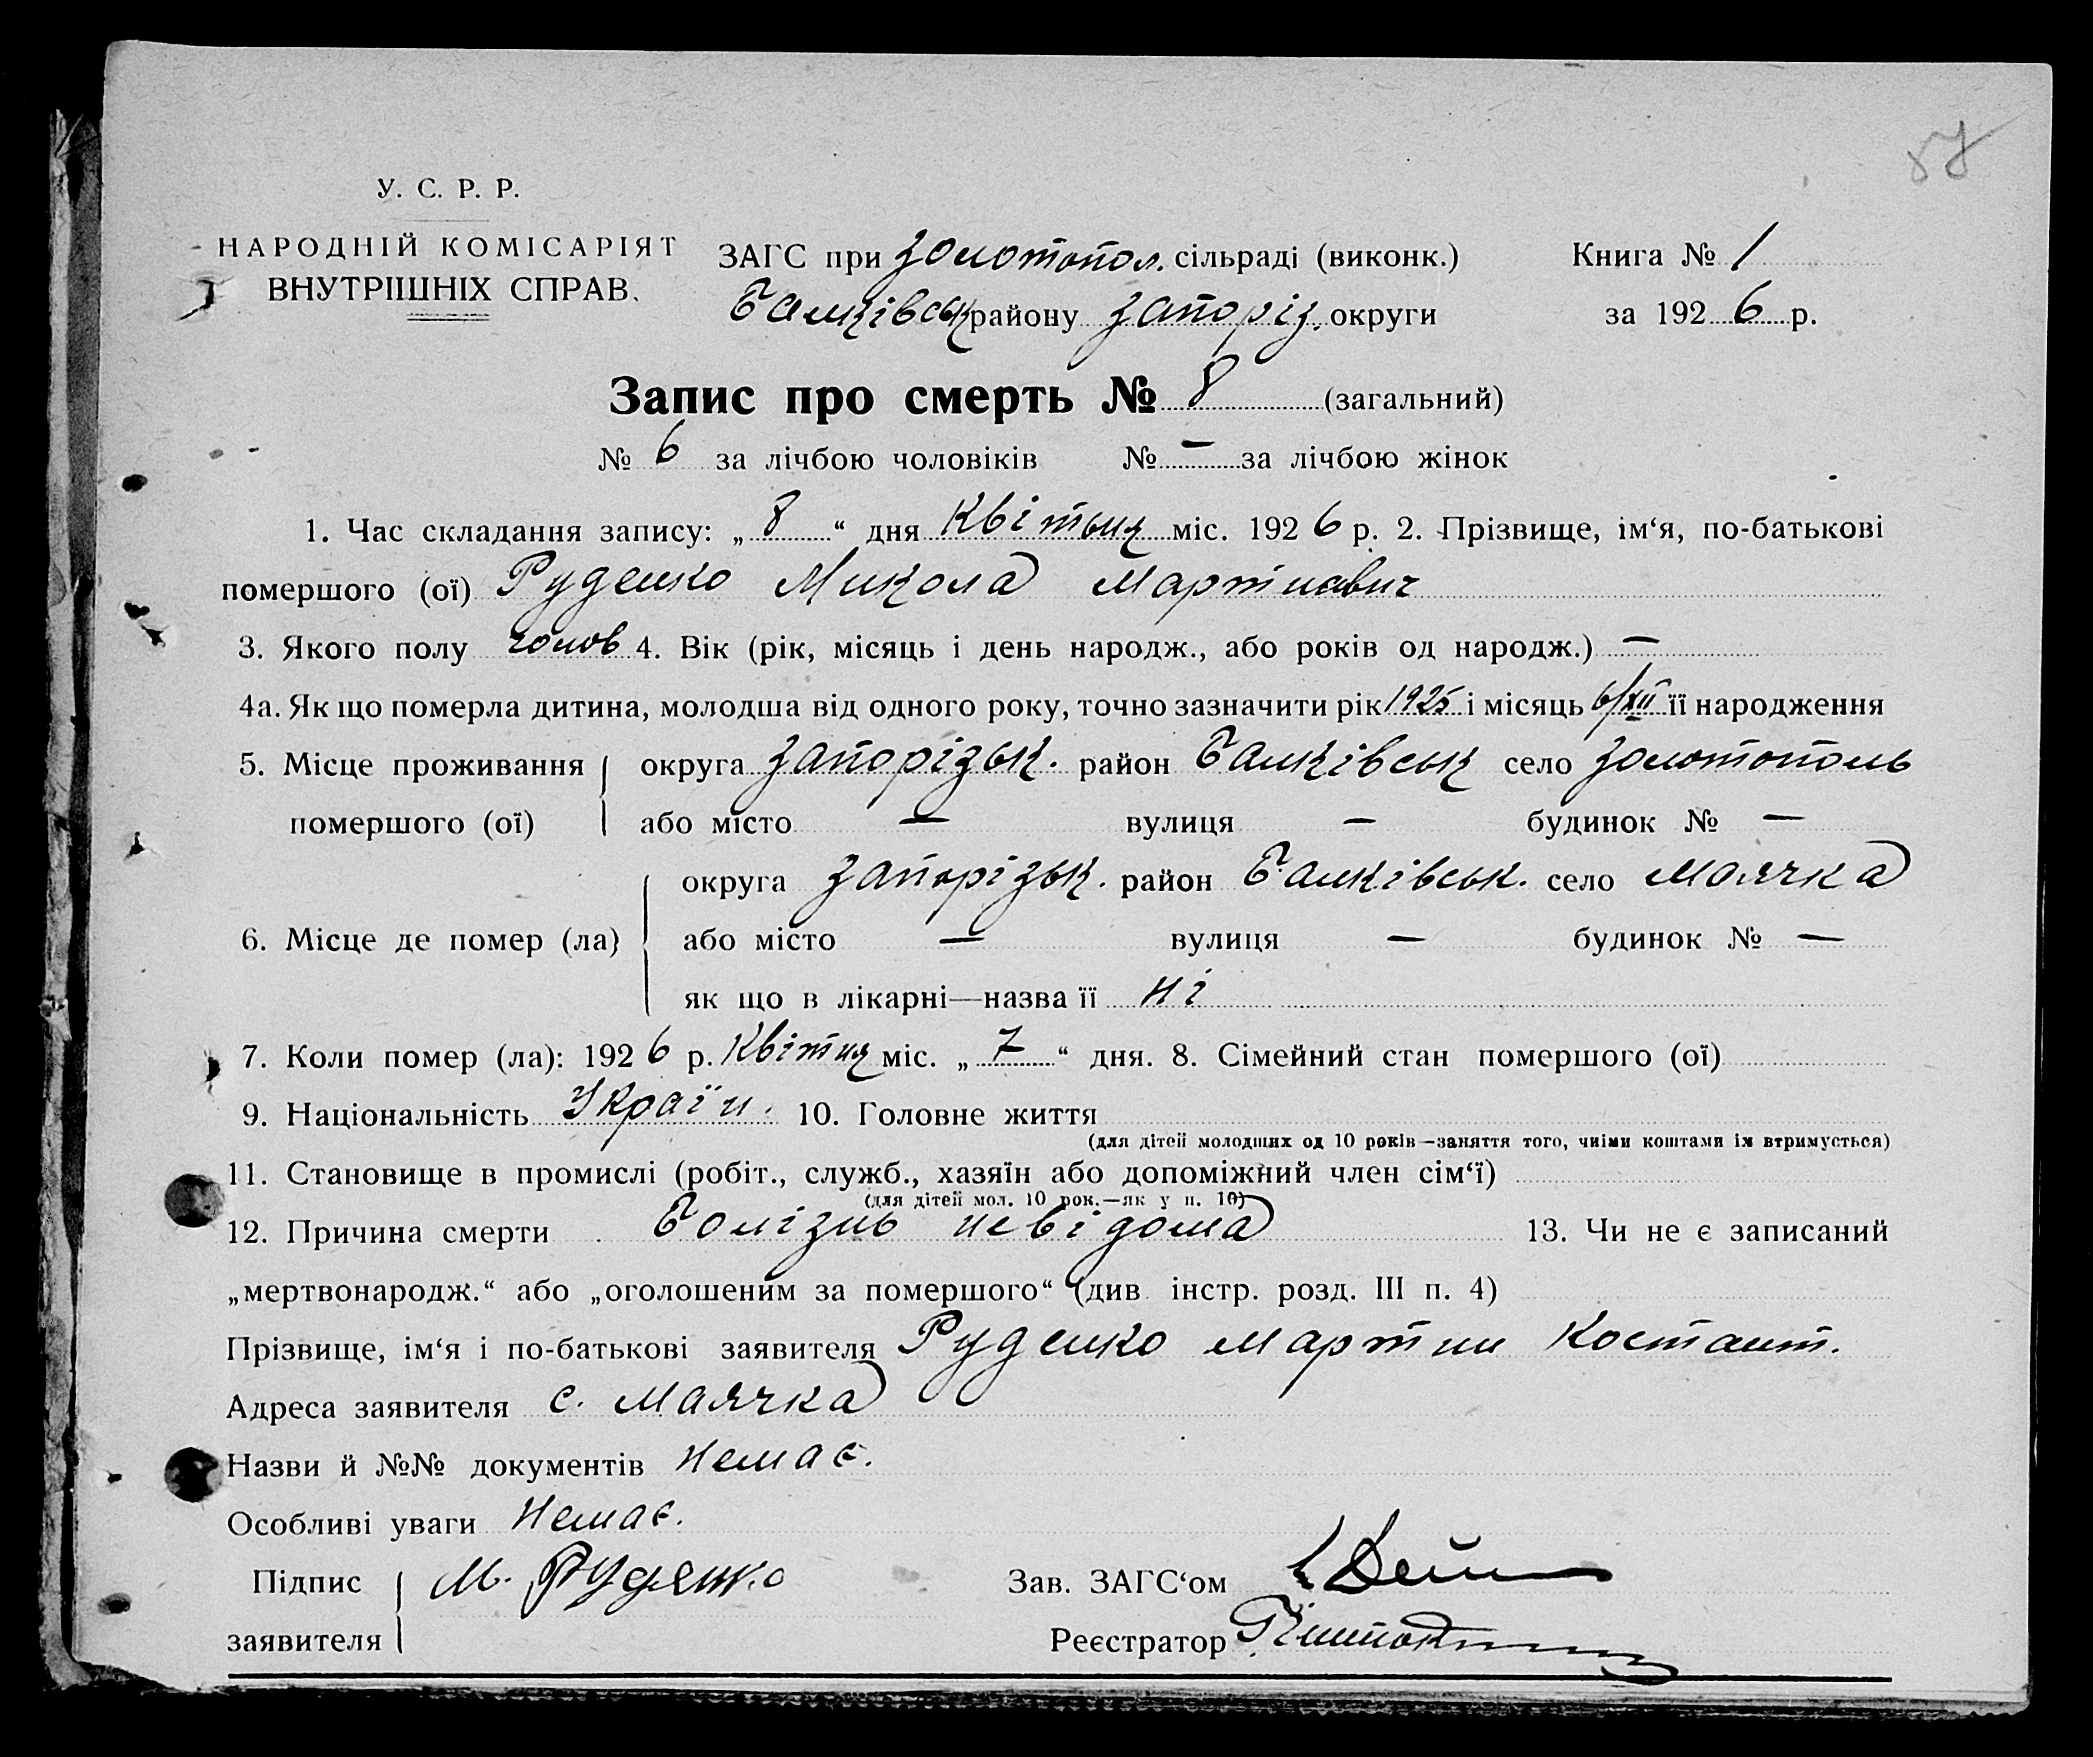 87
У. С. Р. Р.
НАРОДНІЙ КОМІСАРІЯТ
ВНУТРІШНІХ СПРАВ.
ЗАГС при Золотопол. сільраді (виконк.)
Балківськ району Запоріз. округи
Книга № 1
за 1926 р.
Запис про смерть № 8 (загальний)
№ 6 за лічбою чоловіків № — за лічбою жінок
1. Час складання запису: „8“ дня Квітня міс. 1926 р. 2. Прізвище, ім‘я, по-батькові
помершого (ої) Руденко Микола Мартинович
3. Якого полу чолов 4. Вік (рік, місяць і день народж., або років од народж.) —
4а. Як що померла дитина, молодша від одного року, точно зазначити рік 1925 і місяць 6/XII її народження
5. Місце проживання округа Запорізьк. район Балківськ село Золотополь
помершого (ої) або місто — вулиця — будинок № —
округа Запорізьк. район Балківськ. село Маячка
6. Місце де помер (ла) або місто — вулиця — будинок № —
як що в лікарні—назва її ні
7. Коли помер (ла): 1926 р. Квітня міс. „7“ дня. 8. Сімейний стан помершого (ої)
9. Національність Україн. 10. Головне життя
(для дітей молодших од 10 років—заняття того, чиїми коштами їх втримується)
11. Становище в промислі (робіт., служб., хазяїн або допоміжний член сім‘ї)
(для дітей мол. 10 рок.—як у п. 10)
12. Причина смерти Болізнь невідома 13. Чи не є записаний
„мертвонародж.“ або „оголошеним за помершого“ (див. інстр. розд. III п. 4)
Прізвище, ім‘я і по-батькові заявителя Руденко Мартин Костант.
Адреса заявителя с. Маячка
Назви й №№ документів Немає.
Особливі уваги Немає.
Підпис заявителя М. Руденко
Зав. ЗАГС‘ом
Реєстратор